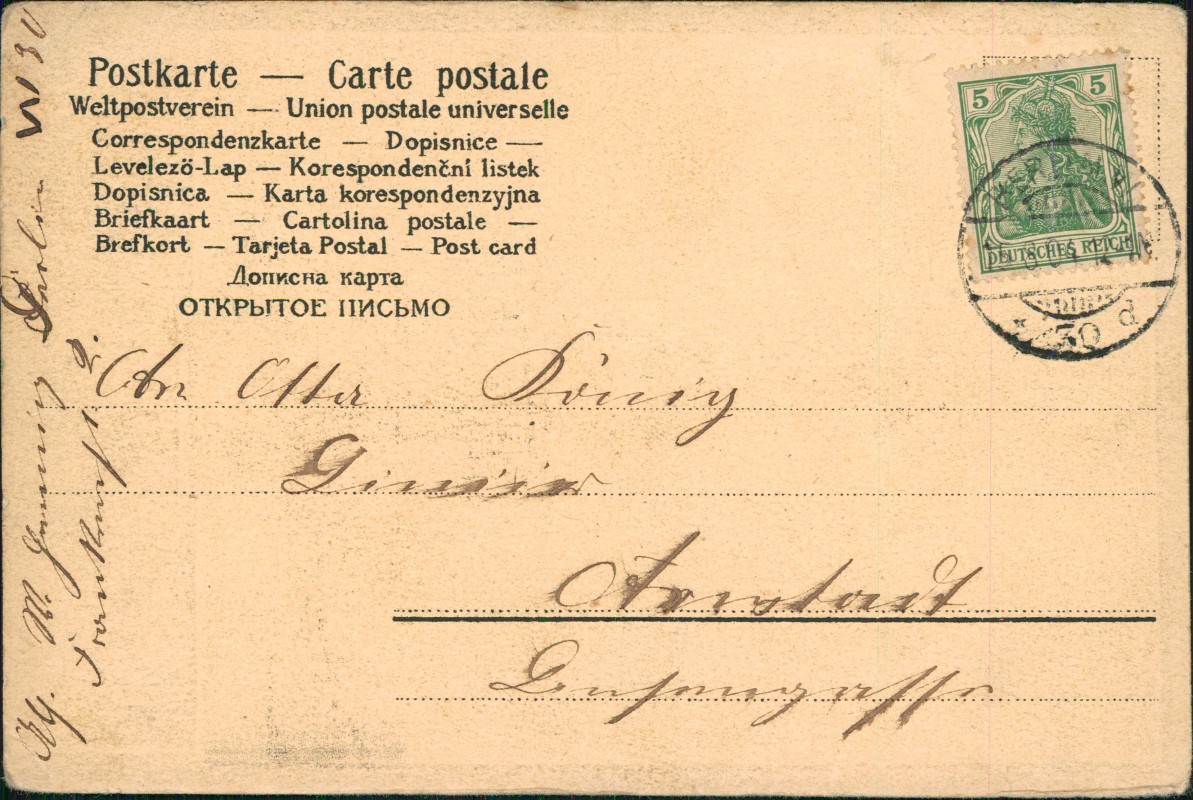 Postkarte — Carte postale
Weltpostverein — Union postale universelle
Correspondenzkarte — Dopisnice —
Levelező-Lap — Korespondenční listek
Dopisnica — Karta korespondenzyjna
Briefkaart — Cartolina postale —
Brefkort — Tarjeta Postal — Post card
Дописна карта
ОТКРЫТОЕ ПИСЬМО
5 5
DEUTSCHES REICH
* 30 d
An Otto König
Arnstadt
Berlin W 30